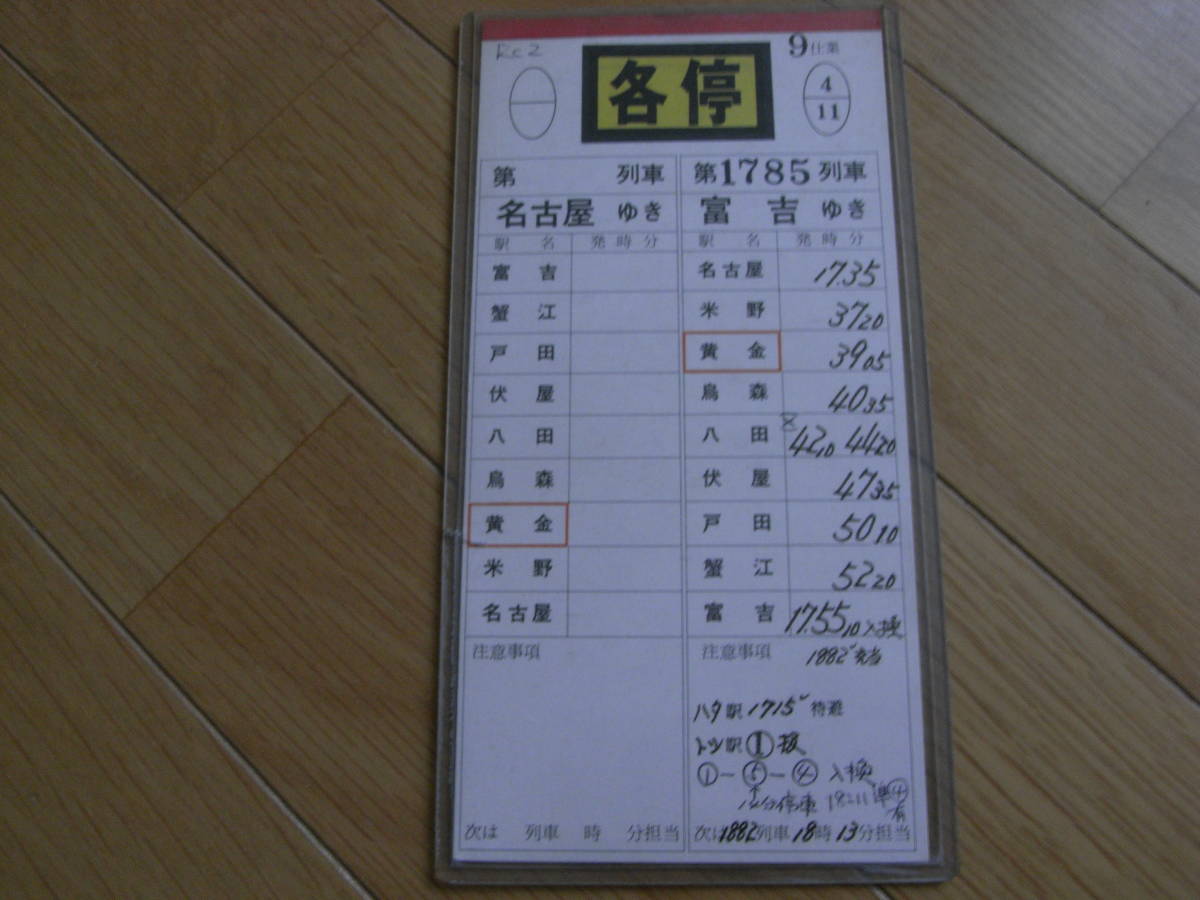 Rc2
各停
9仕業
4
11
第 列車
名古屋 ゆき
駅名 発時分
富吉
蟹江
戸田
伏屋
八田
烏森
黄金
米野
名古屋
注意事項
次は 列車 時 分担当
第1785列車
富吉 ゆき
駅名 発時分
名古屋 17.35
米野 37 20
黄金 39 05
烏森 40 35
八田 42 10 44 20
伏屋 47 35
戸田 50 10
蟹江 52 20
富吉 17.55 10 入換
注意事項 1882レ充当
ハタ駅 1715レ 待避
トツ駅 ① 抜
①-⑤-④ 入換
↑
分停車
有
次は1882列車18時13分担当